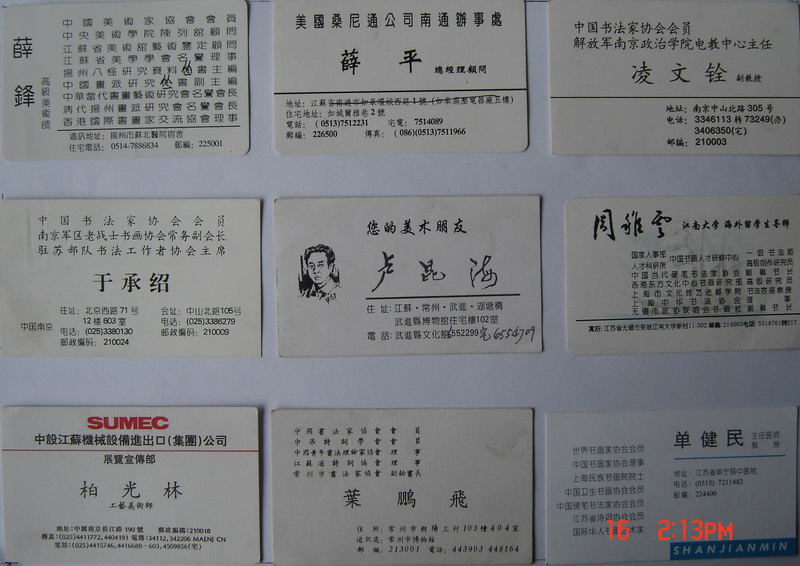 薛鋒
高級美術師
中國美術家協會會員
中央美術學院陳列館顧問
江蘇省美術館藝術鑒定顧問
江蘇省美學學會名譽理事
揚州八怪研究資料叢書主編
中國畫派研究叢書副主編
中華當代書畫藝術研究會名譽會長
清代揚州畫派研究會名譽會長
香港國際書畫家交流協會理事
通訊地址：揚州市蘇北醫院宿舍
住宅電話：0514-7886834 郵編：225001
美國桑尼通公司南通辦事處
薛平 總經理顧問
住宅地址：如城爾雅巷2號
電話：(0513)7512231 宅電：7514089
郵編：226500 傳真：(086)(0513)7511966
中国书法家协会会员
解放军南京政治学院电教中心主任
凌文铨 副教授
地址：南京中山北路305号
电话：3346113转73249(办)
3406350(宅)
邮编：210003
中国书法家协会会员
南京军区老战士书画协会常务副会长
驻苏部队书法工作者协会主席
于承绍
中国南京
住址：北京西路71号
12楼603室
电话：(025)3380130
邮政编码：210024
会址：中山北路105号
电话：(025)3386279
邮政编码：210009
您的美术朋友
卢昆海
住址：江蘇·常州·武進·湖塘橋
武進縣博物館住宅樓102室
電話：武進縣文化館552299 宅6554709
周稚雲 江南大学 海外留学生导师
国家人事部
人才科研所
中国书画人才研修中心
一级书法师
高级创作研究员
中国当代硬笔书法家协会副秘书长
香港东方文化中心书画研究部高级研究员
上海市文化技艺进修学院书法首席教授
上海中华书法协会理事
SUMEC
中設江蘇機械設備進出口(集團)公司
展覽宣傳部
柏光林
工藝美術師
地址：中國南京長江路190號 郵政編碼：210018
傳真：(025)4411772, 4404191 電傳：34112, 342206 MAENJ CN
電話：(025)4415746, 4416688－603, 4509856(宅)
中國書法家協會會員
中華詩詞學會會員
中國青年書法理論家協會理事
江蘇省詩詞協會理事
常州市書法家協會副秘書長
葉鵬飛
住所：常州市朝陽三村103幢404室
通訊處：常州市博物館
郵編：213001 電話：443903 448164
世界书画家协会会员
中国书画家协会理事
上海民族书画院院士
中国卫生书画协会会员
中国硬笔书法家协会会员
江苏省诗词协会会员
国际华人书画艺术家
单健民
主任医师
教授
地址：江苏省阜宁县中医院
电话：(0515) 7211482
邮编：224400
SHANJIANMIN
16 2:13PM